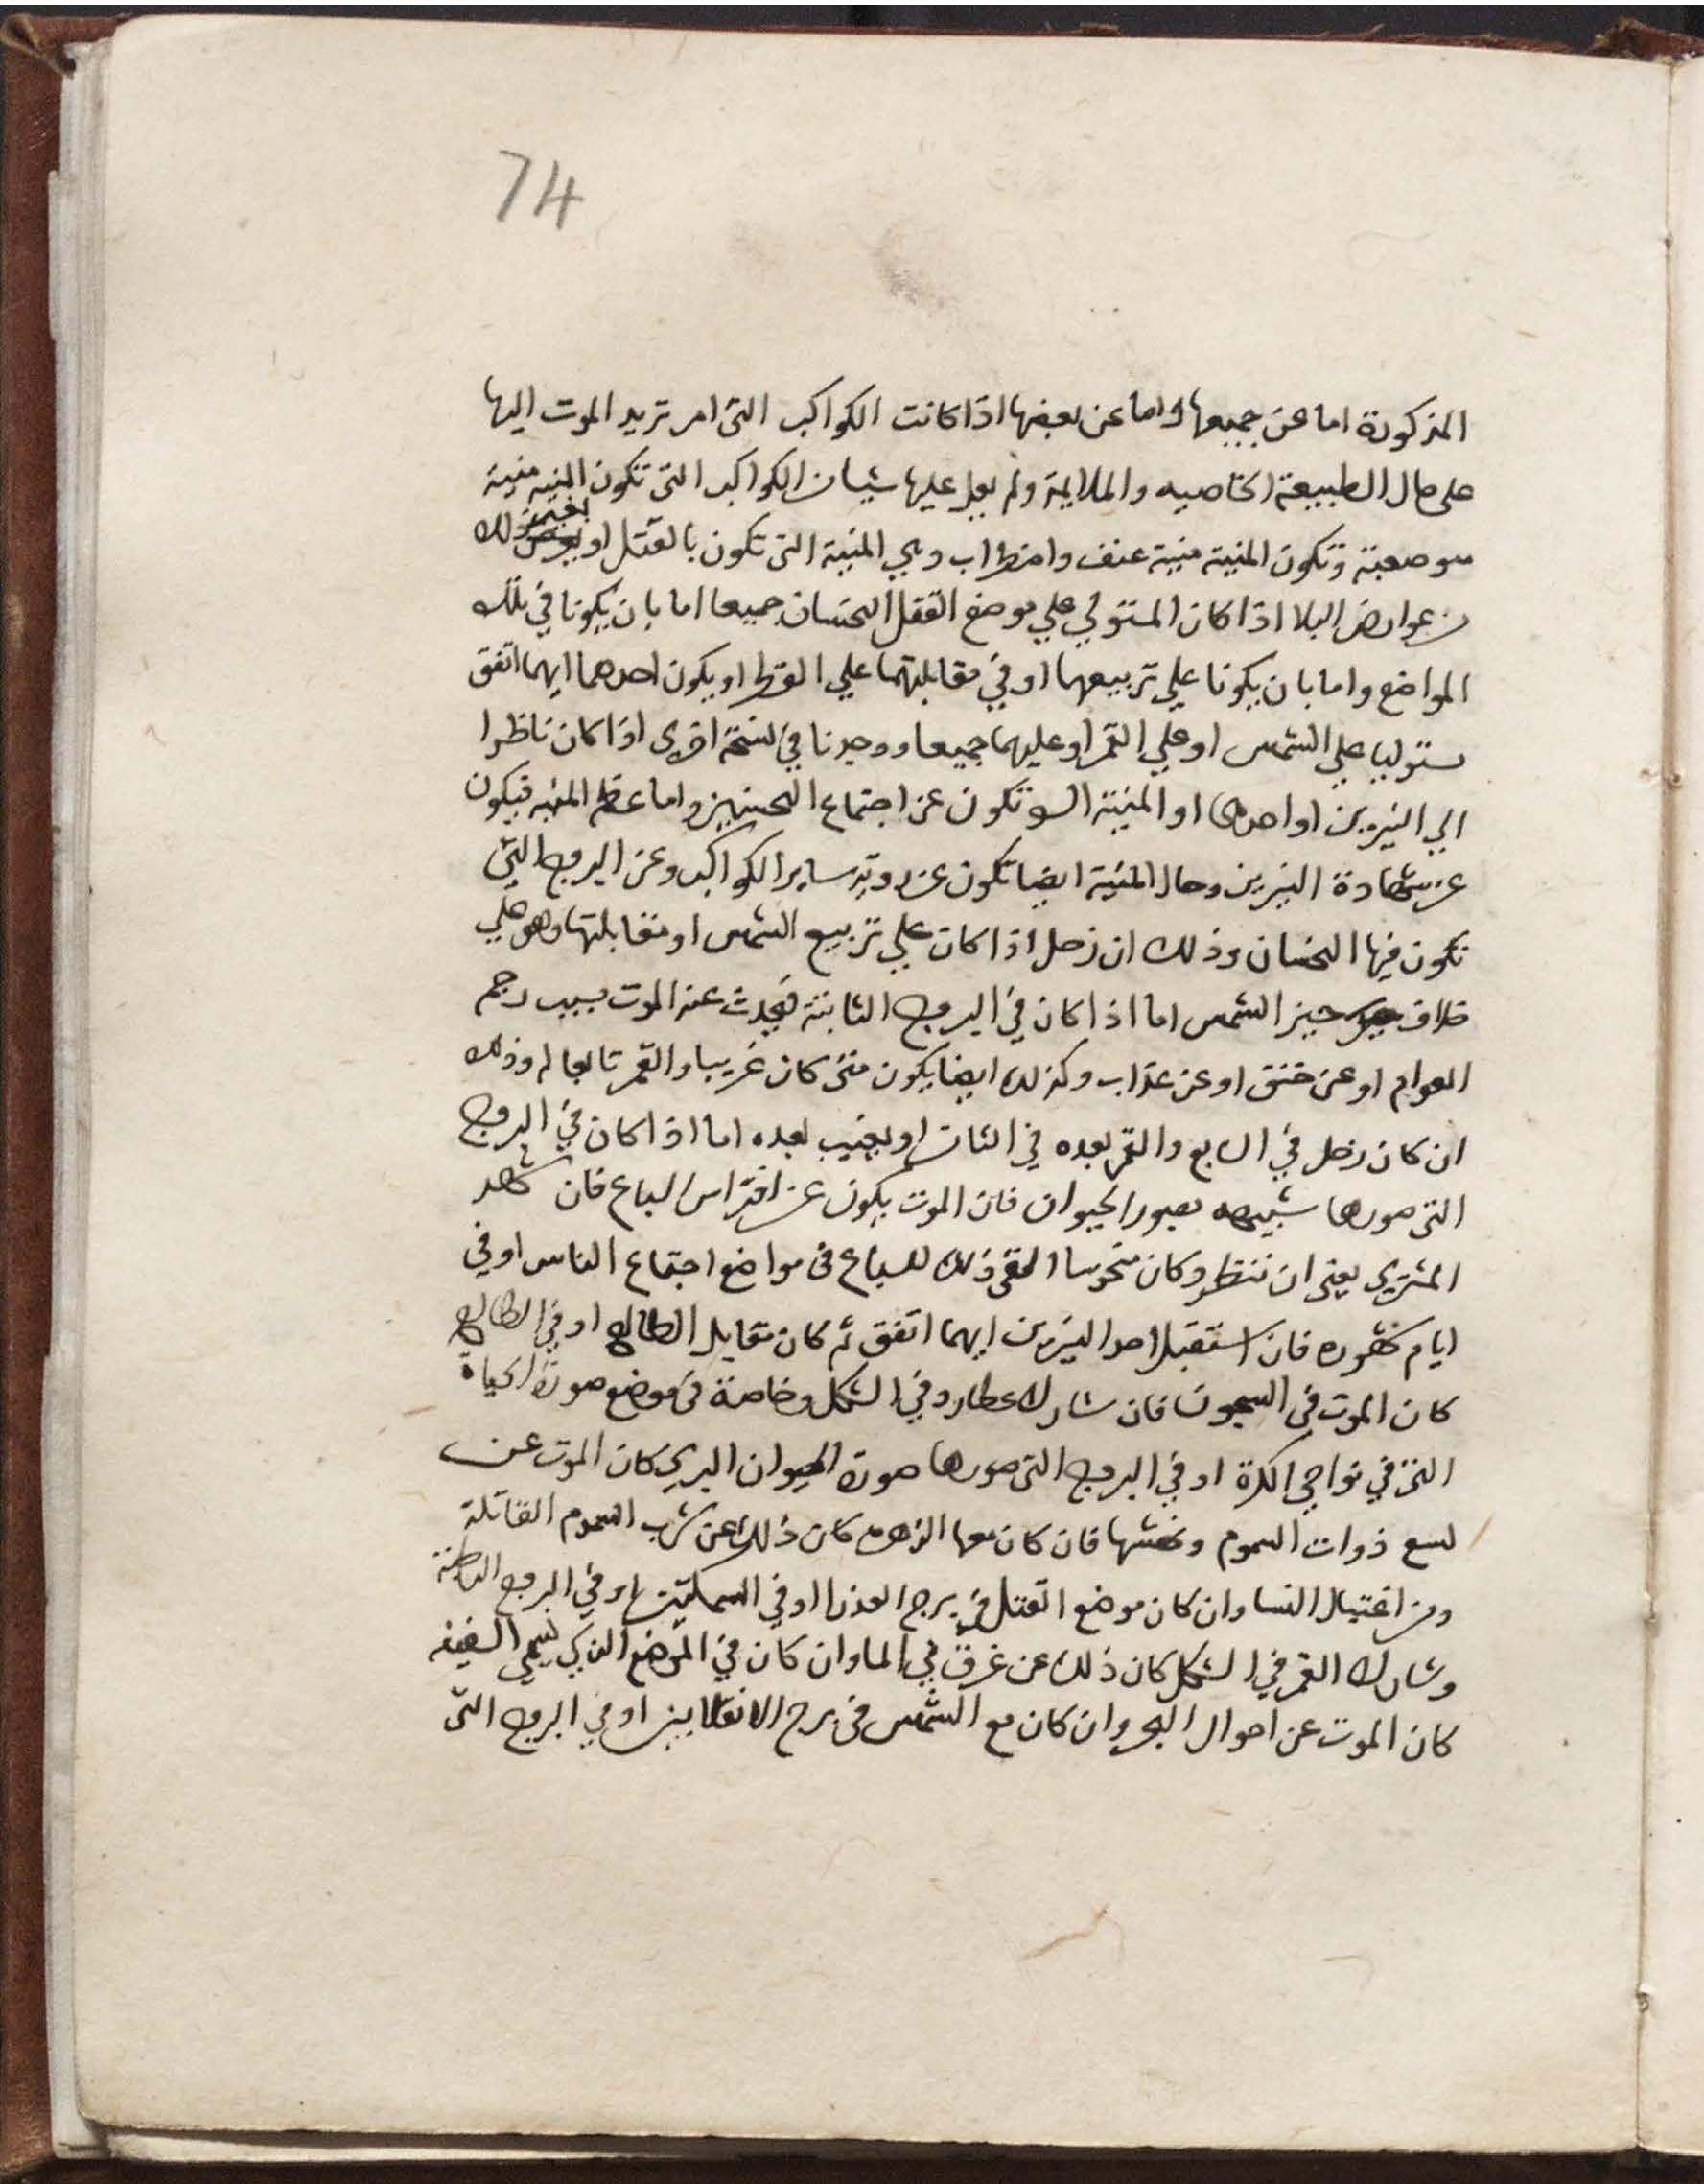 74
المذكورة اما عن جميعها واما عن بعضها اذا كانت الكواكب التي امر تريد الموت اليها
على حال الطبيعة الخاصيه والملايمة ولم يعل عليها شيا من الكواكب التي تكون المنيه منية
سو صعبة وتكون المنية منية عنف واضطراب وهي المنية التي تكون بالقتل او بغير ذلك
من عوارض البلا اذا كان المستولي علي موضع القتل النحسان جميعا اما بان يكونا في تلك
المواضع واما بان يكونا علي تربيعهما او في مقابلتهما علي القطر او يكون احدهما ايهما اتفق
مستوليا علي الشمس او علي القمر او عليهما جميعا ووجدنا في نسخة اخرى اذا كان ناظرا
الي النيرين او احدهما او المنية السو تكون عن اجتماع النحسين واما عظم المنيه فيكون
عن شهادة النيرين وحال المنية ايضا تكون عن روية ساير الكواكب وعن البروج التي
تكون فيها النحسان وذلك ان زحل اذا كان علي تربيع الشمس او مقابلتها وهو علي
خلاف حيز الشمس اما اذا كان في البروج الثابتة فيحدث عنه الموت بسبب رجم
العوام او عن خنق او عن عذاب وكذلك ايضا يكون متى كان غريبا والقمر تابعا له وذلك
ان كان زحل في السابع والقمر بعده في الثامن او بغيب بعده اما اذا كان في البروج
التي صورها شبيهه بصور الحيوان فان الموت يكون عن افتراس السباع فان شهد
المشتري يعني ان ننظر وكان منحوسا القى ذلك للسباع في مواضع اجتماع الناس او في
ايام مشهوره فان استقبل احد النيرين ايهما اتفق ثم كان مقابل الطالع او في الطالع
كان الموت في السجون فان شارك عطارد في الشكل وخاصة في موضع صورة الحياة
التي في نواحي الكرة او في البروج التي صورها صورة الحيوان البري كان الموت عن
لسع ذوات السموم ونهشها فان كان معها الزهره كان ذلك عن شرب السموم القاتلة
ومن اغتيال النسا وان كان موضع القتل في برج العذرا او في السمكتين او في البروج الباطنة
وشارك القمر في الشكل كان ذلك عن غرق في الما وان كان في الموضع الذي يسمي السفينه
كان الموت عن احوال البحر وان كان مع الشمس في برج الانقلابين او في البروج التي